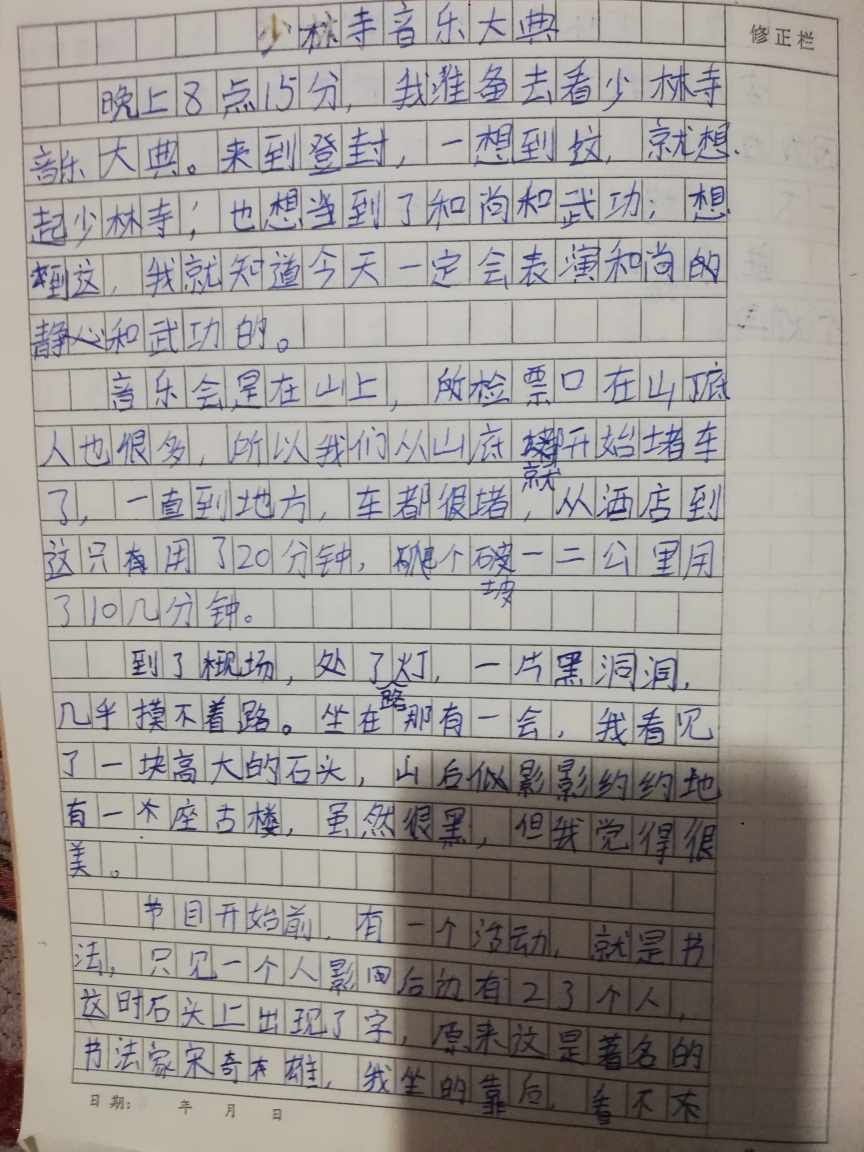 少林寺音乐大典
修正栏
晚上8点15分，我准备去看少林寺
音乐大典。来到登封，一想到这，就想
起少林寺；也想当到了和尚和武功；想
到这，我就知道今天一定会表演和尚的
静心和武功的。
音乐会是在山上，所检票口在山顶底
人也很多，所以我们从山底就开始堵车
了，一直到地方，车都很堵，从酒店到
这只有用了20分钟，个坡一二公里用
了10几分钟。
到了现场，处了路灯，一片黑洞洞，
几乎摸不着路。坐在那有一会，我看见
了一块高大的石头，山后似影影约约地
有一座古楼，虽然很黑，但我觉得很
美。
节目开始前，有一个活动，就是书
法，只见一个人影四后边有23个人，
这时石头上出现了字，原来这是著名的
书法家宋奇雄，我坐的靠后，看不太
日期： 年 月 日